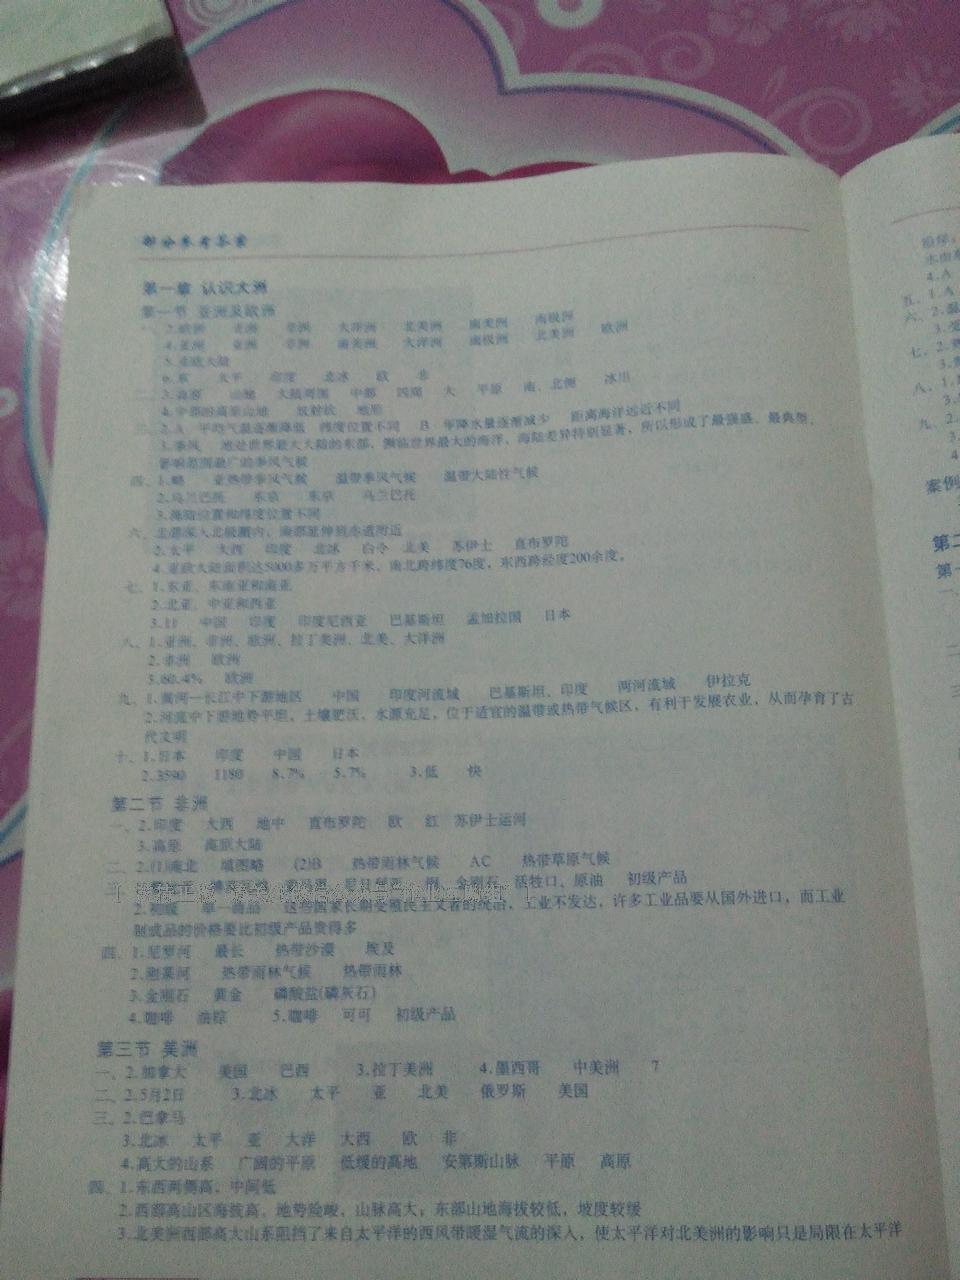 部分参考答案
第一章 认识大洲
第一节 亚洲及欧洲
一、2.欧洲 亚洲 非洲 大洋洲 北美洲 南美洲 南极洲
4.亚洲 亚洲 非洲 南美洲 大洋洲 南极洲 北美洲 欧洲
5.亚欧大陆
6.东 太平 印度 北冰 欧 非
二、3.高原 山地 大陆周围 中部 四周 大 平原 南、北侧 冰川
4.中部的高原山地 放射状 地形
三、2.A 平均气温逐渐降低 纬度位置不同 B 年降水量逐渐减少 距离海洋远近不同
3.季风 地处世界最大大陆的东部，濒临世界最大的海洋，海陆差异特别显著，所以形成了最强盛、最典型、
影响范围最广的季风气候
四、1.略 亚热带季风气候 温带季风气候 温带大陆性气候
2.乌兰巴托 东京 东京 乌兰巴托
3.海陆位置和纬度位置不同
六、北部深入北极圈内，南部延伸到赤道附近
2.太平 大西 印度 北冰 白令 北美 苏伊士 直布罗陀
4.亚欧大陆面积达5000多万平方千米，南北跨纬度76度，东西跨经度200余度。
七、1.东亚、东南亚和南亚
2.北亚、中亚和西亚
3.11 中国 印度 印度尼西亚 巴基斯坦 孟加拉国 日本
八、1.亚洲、非洲、欧洲、拉丁美洲、北美、大洋洲
2.非洲 欧洲
3.60.4% 欧洲
九、1.黄河—长江中下游地区 中国 印度河流域 巴基斯坦、印度 两河流域 伊拉克
2.河流中下游地势平坦，土壤肥沃，水源充足，位于适宜的温带或热带气候区，有利于发展农业，从而孕育了古
代文明
十、1.日本 印度 中国 日本
2.3590 1180 8.7% 5.7% 3.低 快
第二节 非洲
一、2.印度 大西 地中 直布罗陀 欧 红 苏伊士运河
3.高原 高原大陆
二、2.(1)南北 填图略 (2)B 热带雨林气候 AC 热带草原气候
三、 尼日利亚 铜 金刚石 活牲口、原油 初级产品
2.初级 单一商品 这些国家长期受殖民主义者的统治，工业不发达，许多工业品要从国外进口，而工业
制成品的价格要比初级产品贵得多
四、1.尼罗河 最长 热带沙漠 埃及
2.刚果河 热带雨林气候 热带雨林
3.金刚石 黄金 磷酸盐(磷灰石)
4.咖啡 油棕 5.咖啡 可可 初级产品
第三节 美洲
一、2.加拿大 美国 巴西 3.拉丁美洲 4.墨西哥 中美洲 7
二、2.5月2日 3.北冰 太平 亚 北美 俄罗斯 美国
三、2.巴拿马
3.北冰 太平 亚 大洋 大西 欧 非
4.高大的山系 广阔的平原 低缓的高地 安第斯山脉 平原 高原
四、1.东西两侧高，中间低
2.西部高山区海拔高，地势险峻，山脉高大，东部山地海拔较低，坡度较缓
3.北美洲西部高大山系阻挡了来自太平洋的西风带暖湿气流的深入，使太平洋对北美洲的影响只是局限在太平洋
4.A
五、1.A
案例
第二
第一